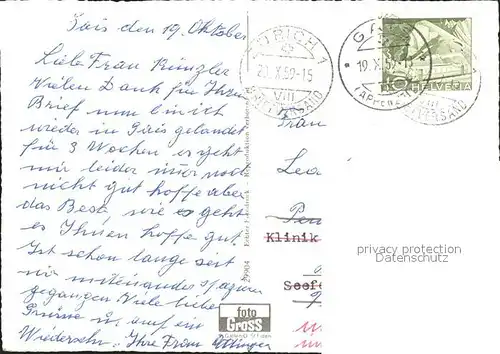 Gais den 19. Oktober
Liebe Frau Künzler
Vielen Dank für Ihren
Brief nun bin ich
wieder in Gais gelandet
für 3 Wochen es geht
mir leider immer noch
nicht gut hoffe aber
das Beste wie es geht
es Ihnen hoffe gut.
Ist schon lange seit
wir miteinander spazieren
gegangen Viele liebe
Grüsse u. auf ein
Wiedersehn. Ihre Frau
ZÜRICH 1
20.X.52-15
VIII
BRIEFVERSAND
GAIS
19.X.52-15
(APPENZELL)
HELVETIA
VIII
BRIEFVERSAND
Frau
Klinik
Seef
29904
Echte Photographie
Reproduktion verboten
foto
Gross
St. Gallen
privacy protection
Datenschutz